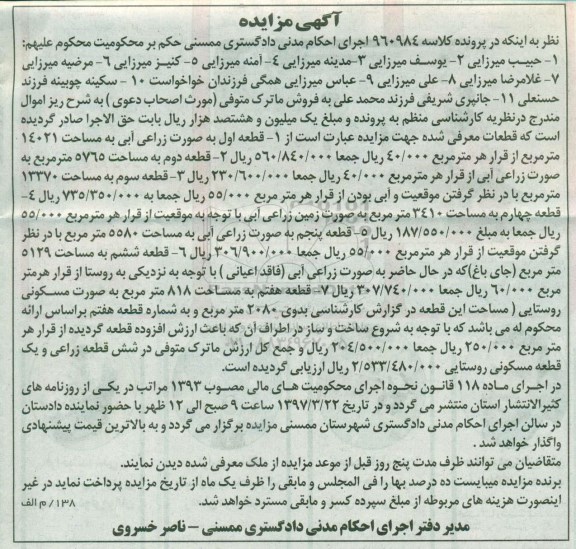 آگهی مزایده
نظر به اینکه در پرونده کلاسه ۹۶۰۹۸۴ اجرای احکام مدنی دادگستری ممسنی حکم بر محکومیت محکوم علیهم:
۱- حبیب میرزایی ۲- یوسف میرزایی ۳-مدینه میرزایی ۴- آمنه میرزایی ۵- کنیز میرزایی ۶- مرضیه میرزایی
۷- غلامرضا میرزایی ۸- علی میرزایی ۹- عباس میرزایی همگی فرزندان خواخواست ۱۰ - سکینه چوبینه فرزند
حسنعلی ۱۱- جانپری شریفی فرزند محمد علی به فروش ماترک متوفی (مورث اصحاب دعوی ) به شرح ریز اموال
مندرج درنظریه کارشناسی منظم به پرونده و مبلغ یک میلیون و هشتصد هزار ریال بابت حق الاجرا صادر گردیده
است که قطعات معرفی شده جهت مزایده عبارت است از ۱- قطعه اول به صورت زراعی آبی به مساحت ۱۴۰۲۱
مترمربع از قرار هر مترمربع ۴۰/۰۰۰ ریال جمعا ۵۶۰/۸۴۰/۰۰۰ ریال ۲- قطعه دوم به مساحت ۵۷۶۵ مترمربع به
صورت زراعی آبی از قرار هر مترمربع ۴۰/۰۰۰ ریال جمعا ۲۳۰/۶۰۰/۰۰۰ ریال ۳- قطعه سوم به مساحت ۱۳۳۷۰
مترمربع با در نظر گرفتن موقعیت و آبی بودن از قرار هر متر مربع ۵۵/۰۰۰ ریال جمعا به ۷۳۵/۳۵۰/۰۰۰ ریال ۴-
قطعه چهارم به مساحت ۳۴۱۰ متر مربع به صورت زمین زراعی آبی با توجه به موقعیت از قرار هر متر مربع ۵۵/۰۰۰
ریال جمعا به مبلغ ۱۸۷/۵۵۰/۰۰۰ ریال ۵- قطعه پنجم به صورت زراعی آبی به مساحت ۵۵۸۰ متر مربع با در نظر
گرفتن موقعیت از قرار هر مترمربع ۵۵/۰۰۰ ریال جمعا ۳۰۶/۹۰۰/۰۰۰ ریال ۶- قطعه ششم به مساحت ۵۱۲۹
متر مربع (جای باغ)که در حال حاضر به صورت زراعی آبی (فاقد اعیانی ) با توجه به نزدیکی به روستا از قرار هرمتر
مربع ۶۰/۰۰۰ ریال جمعا ۳۰۷/۷۴۰/۰۰۰ ریال ۷- قطعه هفتم به مساحت ۸۱۸ متر مربع به صورت مسکونی
روستایی ( مساحت این قطعه در گزارش کارشناسی بدوی ۲۰۸۰ متر مربع و به شماره قطعه هفتم براساس ارائه
محکوم له می باشد که با توجه به شروع ساخت و ساز در اطراف آن که باعث ارزش افزوده قطعه گردیده از قرار هر
متر مربع ۲۵۰/۰۰۰ ریال جمعا ۲۰۴/۵۰۰/۰۰۰ ریال و جمع کل ارزش ماترک متوفی در شش قطعه زراعی و یک
قطعه مسکونی روستایی ۲/۵۳۳/۴۸۰/۰۰۰ ریال ارزیابی گردیده است.
در اجرای ماده ۱۱۸ قانون نحوه اجرای محکومیت های مالی مصوب ۱۳۹۳ مراتب در یکی از روزنامه های
کثیرالانتشار استان منتشر می گردد و در تاریخ ۱۳۹۷/۳/۲۲ ساعت ۹ صبح الی ۱۲ ظهر با حضور نماینده دادستان
در سالن اجرای احکام مدنی دادگستری شهرستان ممسنی مزایده برگزار می گردد و به بالاترین قیمت پیشنهادی
واگذار خواهد شد .
متقاضیان می توانند ظرف مدت پنج روز قبل از موعد مزایده از ملک معرفی شده دیدن نمایند.
برنده مزایده میبایست ده درصد بها را فی المجلس و مابقی را ظرف یک ماه از تاریخ مزایده پرداخت نماید در غیر
اینصورت هزینه های مربوطه از مبلغ سپرده کسر و مابقی مسترد خواهد شد. ۱۳۸/ م الف
مدیر دفتر اجرای احکام مدنی دادگستری ممسنی - ناصر خسروی